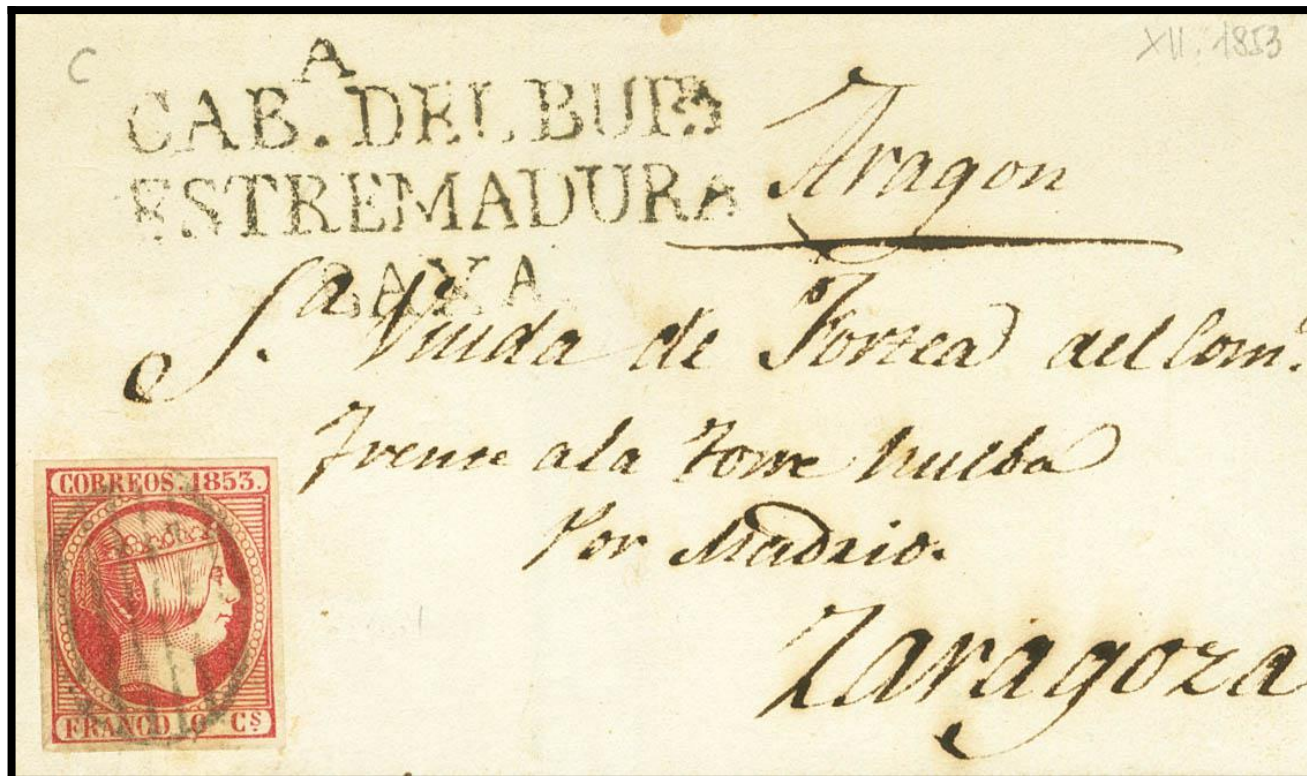 C
XII. 1853
A
CAB. DEL BUEY
ESTREMADURA
BAXA.
Aragon
S.ª Viuda de Fortea del Com.º
frente ala torre nueba
Por Madrid.
Zaragoza
CORREOS. 1853.
FRANCO 6 Cs